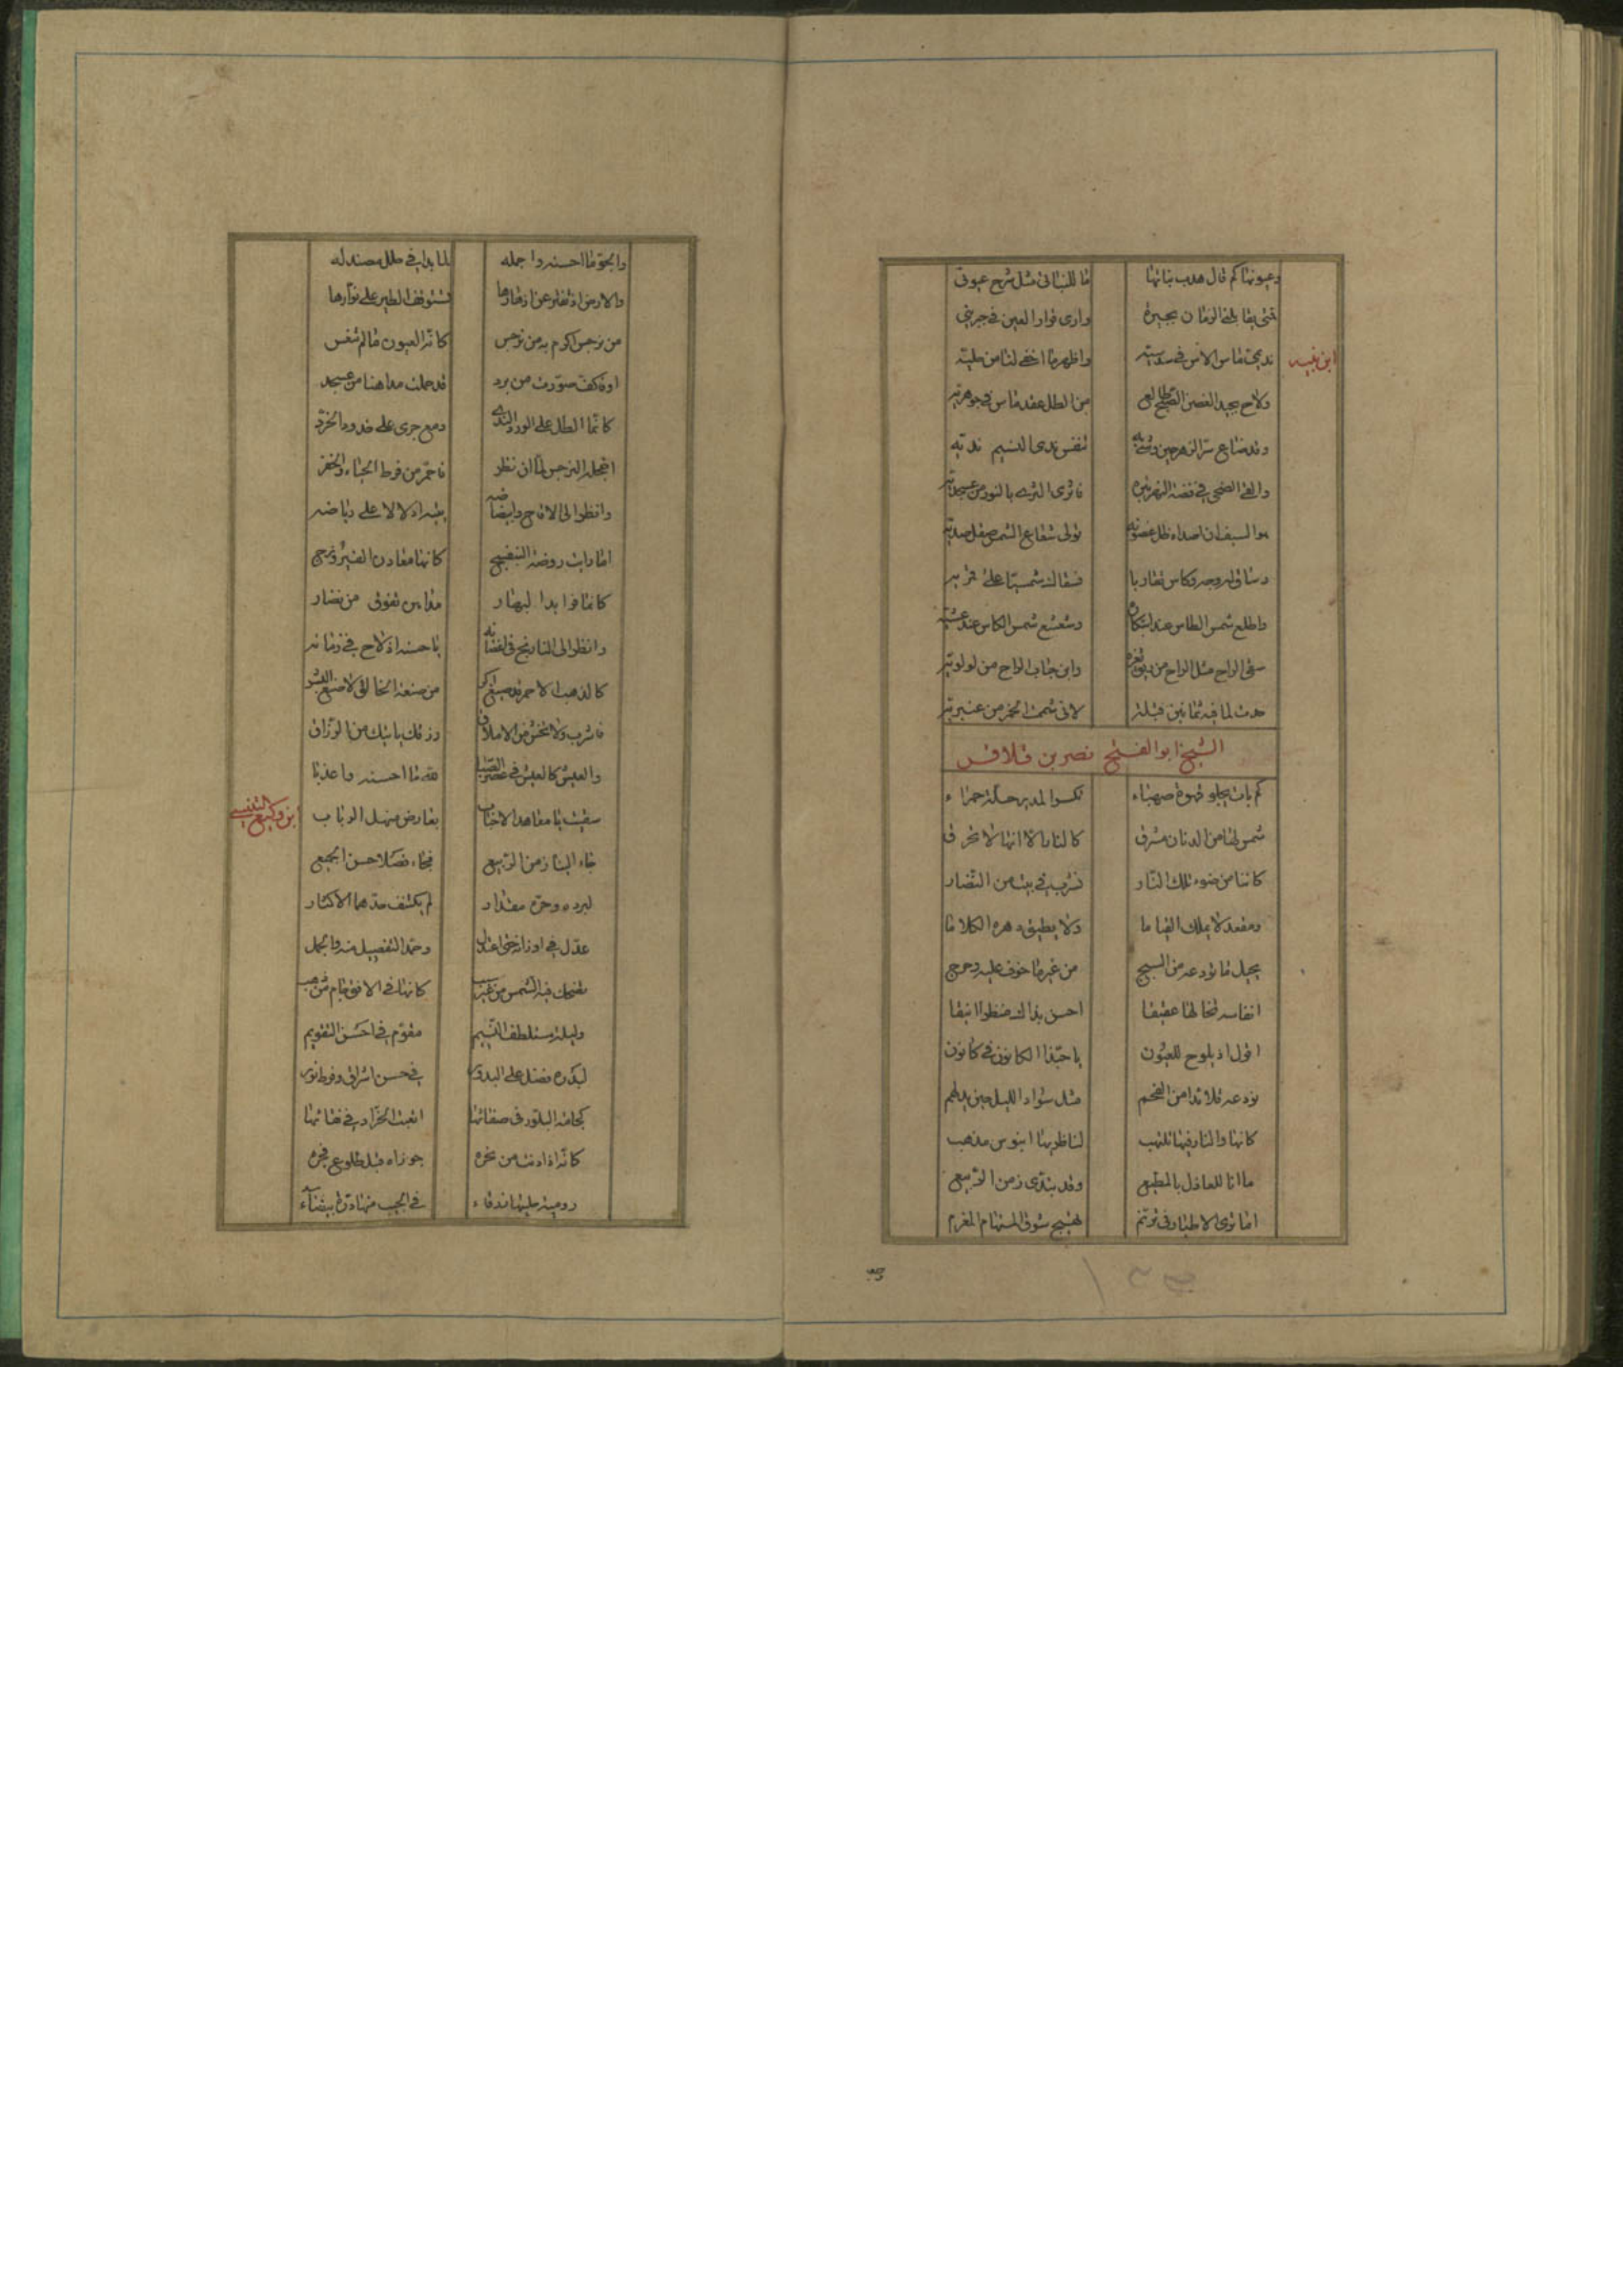 وعيونها كم قال هدب نباتها ما للنباتي مثل شرح عيوني
متى يقابلني الزمان بجبره وارى قرار العين في جيرتي
ابن نبيه
نديمي ماس الانس في سندسيته واظهر ما اخفى لنا من حليته
ولاح بجيد الغصن من الطل عقد ماس في جوهريته
وقد ضاع سر الزهر حين تنفس ندى النسيم نديه
والقى الضحى في فضة النهر تبره فاثرى الثرى بالنور من عسجديته
هو السيف ان اصداه ظل غصونه تولى شعاع الشمس صقل صديه
وساق له وجه وكاس تقاربا
واطلع شمس الطاس عند وشعشع شمس الكاس عند عشيته
سقى الراح مثل الراح من ريق ثغره واين حباب الراح من لولويته
حدث لما فيه ثمانين قبلة لاني شممت الخمر من عنبريته
الشيخ ابو الفتح نصر بن قلاقس
كم بات يجلو قهوة صهباء تكسو المدير حلة حمراء
شمس لها من الدنان مشرق كالنار الا انها لا تحرق
كاننا من ضوء تلك النار نشرب في بيت من النضار
ومقعد لا يملك القياما ولا يطيق دهره الكلاما
يحيل ما نودعه من السبج من غير ما خوف عليه وحرج
انفاسه تخالها عقيقا احسن بذاك منظرا انيقا
اقول اذ يلوح للعيون يا حبذا الكانون في كانون
نودعه قلائدا من الفحم مثل سواد الليل حين يدلهم
كانها والنار فيها تلهب لناظريها ابنوس مذهب
ما انا للعاذل بالمطيع وقد بتدى زمن الربيع
اما ترى الاطيار في ترنم تهيج شوق المستهام المغرم
والجو ما احسنه واجمله لما بدا في حلل مصندله
والارض اذ تفتر عن ازهارها تستوقف الطير على نوارها
من نرجس اكرم به من نرجس كانه العيون ما لم تنعس
او كف صورت من برد قد حملت مداهنا من عسجد
كانما الطل على الورد الندي دمع جرى على خدود الخرد
اخجله النرجس لما ان نظر فاحمر من فرط الحياء والخفر
وانظر الى الاقاح وابيضاضه يتيه ادلالا على رياضه
اما رايت روضة البنفسج كانها معادن الفيروزج
كانما فوا بدا لبهار مداهن تفوق من نضار
وانظر الى النارنج في اغصانه يا حسنه اذ لاح في زمانه
كالذهب الاحمر قد صيغ اكر من صنعة الخالق لا صنع البشر
فاشرب ولا تخش من الاملاق رزقك ياتيك من الرزاق
والعيش كالعيش في عصر الصبا لله ما احسنه واعذبا
سقيت يا معاهد الاحباب بعارض منهل الرباب
ابن وكيع التنيسي
جاء الينا زمن الربيع فجاء فصلا حسن الجميع
لبرده وحره مقدار لم يكشف حدهما الاكثار
عدل في اوزانه حتى اعتدل وحمد التفصيل منه والجمل
تضحك فيه الشمس من غير عجب كانها في الافق جام من ذهب
وليله مستلطف النسيم مقوم في احسن التقويم
لبدره فضل على البدور في حسن اشراق وفرط نور
كجامة البلور في صفائها
كانه اذا دنت من نحره جوزاه قبل طلوع فجره
رومية حليتها زرقاء في الجيب منها درة بيضاء